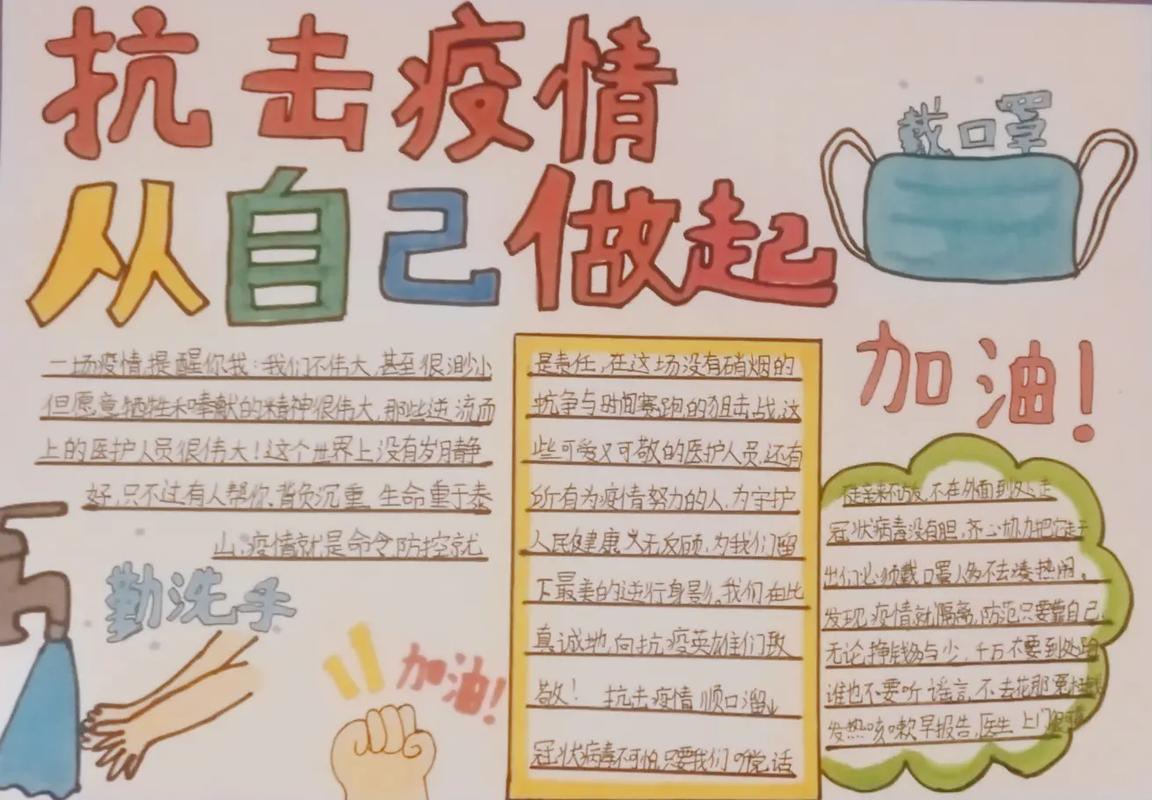 抗击疫情
从自己做起
戴口罩
一场疫情,提醒你我:我们不伟大,甚至很渺小
但愿意牺牲和奉献的精神很伟大,那些逆流而
上的医护人员很伟大!这个世界上没有岁月静
好,只不过有人帮你背负沉重,生命重于泰
山,疫情就是命令,防控就
是责任,在这场没有硝烟的
抗争与时间赛跑的狙击战,这
些可爱又可敬的医护人员,还有
所有为疫情努力的人,为守护
人民健康义无反顾,为我们留
下最美的逆行身影。我们在此
真诚地,向抗疫英雄们致
敬! 抗击疫情顺口溜
冠状病毒不可怕,只要我们听党话
加油!
不在外面到处走
冠状病毒没有胆,齐心协力把它
出们必须戴口罩,人多不去凑热闹,
发现疫情就隔离,防范只要靠自己
无论挣钱多与少,千万不要到处跑
谁也不要听谣言,不去花那
发热咳嗽早报告,医生上门
勤洗手
加油!